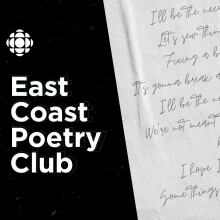 East
Coast
Poetry
Club
I'll be the nee
Let's sew thin
Fixing a b
It's gonna break a
I'll be the n
We're not meant
b
I hope I
Somethings